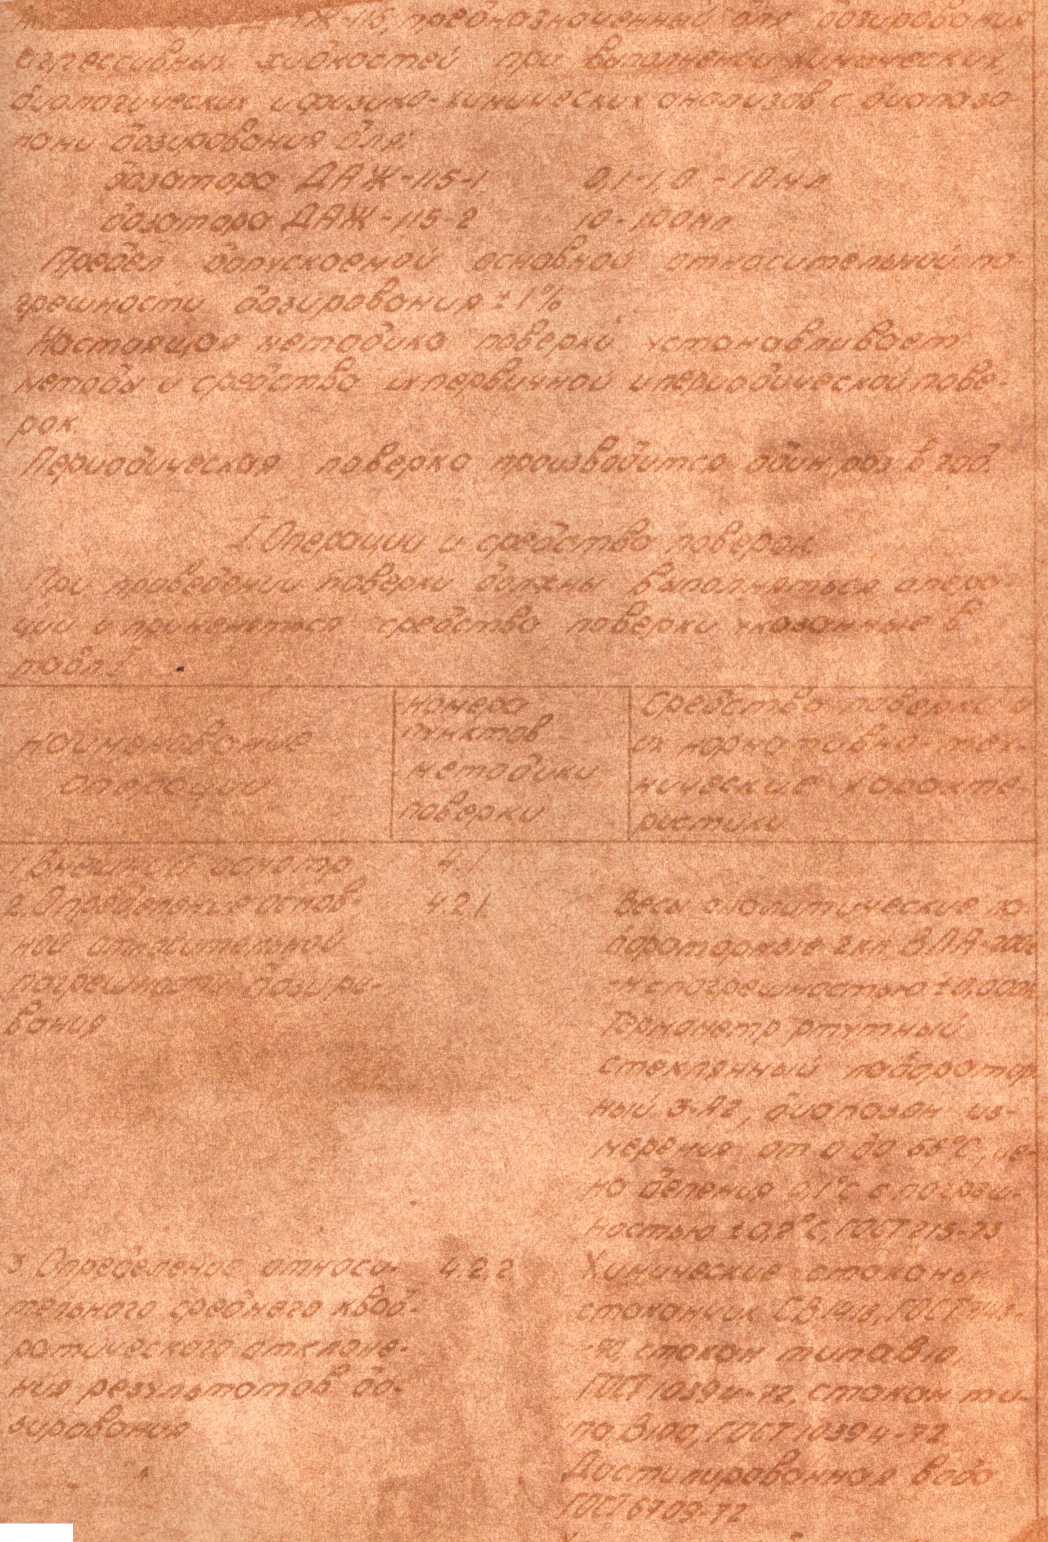 ДАЖ-115, предназначенный для дозирования
агрессивных жидкостей при выполнении химических,
биологических и физико-химических анализов с диапазо-
нами дозирования для:
дозатора ДАЖ-115-1 0,1-1,0 -10 мл
дозатора ДАЖ-115-2 10-100 мл
Предел допускаемой основной относительной по-
грешности дозирования ±1%
Настоящая методика поверки устанавливает
методы и средства их первичной и периодической пове-
рок
Периодическая поверка производится один раз в год.
I Операции и средства поверки
При проведении поверки должны выполняться опера-
ции и применяться средства поверки указанные в
табл.1
Наименование
операции
номера
пунктов
методики
поверки
Средства поверки и
их нормативно-тех-
нические характе-
ристики
1. Внешний осмотр 4.1
2. Определение основ- 4.2.1.
ной относительной
погрешности дозиро-
вания
Весы аналитические ла-
бораторные 2кл. ВЛА-200г
-М с погрешностью
Термометр ртутный
стеклянный лаборатор
ный 3-А2, диапазон из-
мерения от 0 до 55°С, це-
на деления 0,1°С с погреш-
ностью ±0,2°С, ГОСТ 215-73
3. Определение относи- 4.2.2
тельного среднего квад-
ратического отклоне-
ния результатов до-
зирования
Химические стаканы:
стаканчик СВ ГОСТ
стакан типа В10,
ГОСТ 10394-72, стакан ти-
па В100, ГОСТ 10394-72
Дистиллированная вода
ГОСТ 6709-72